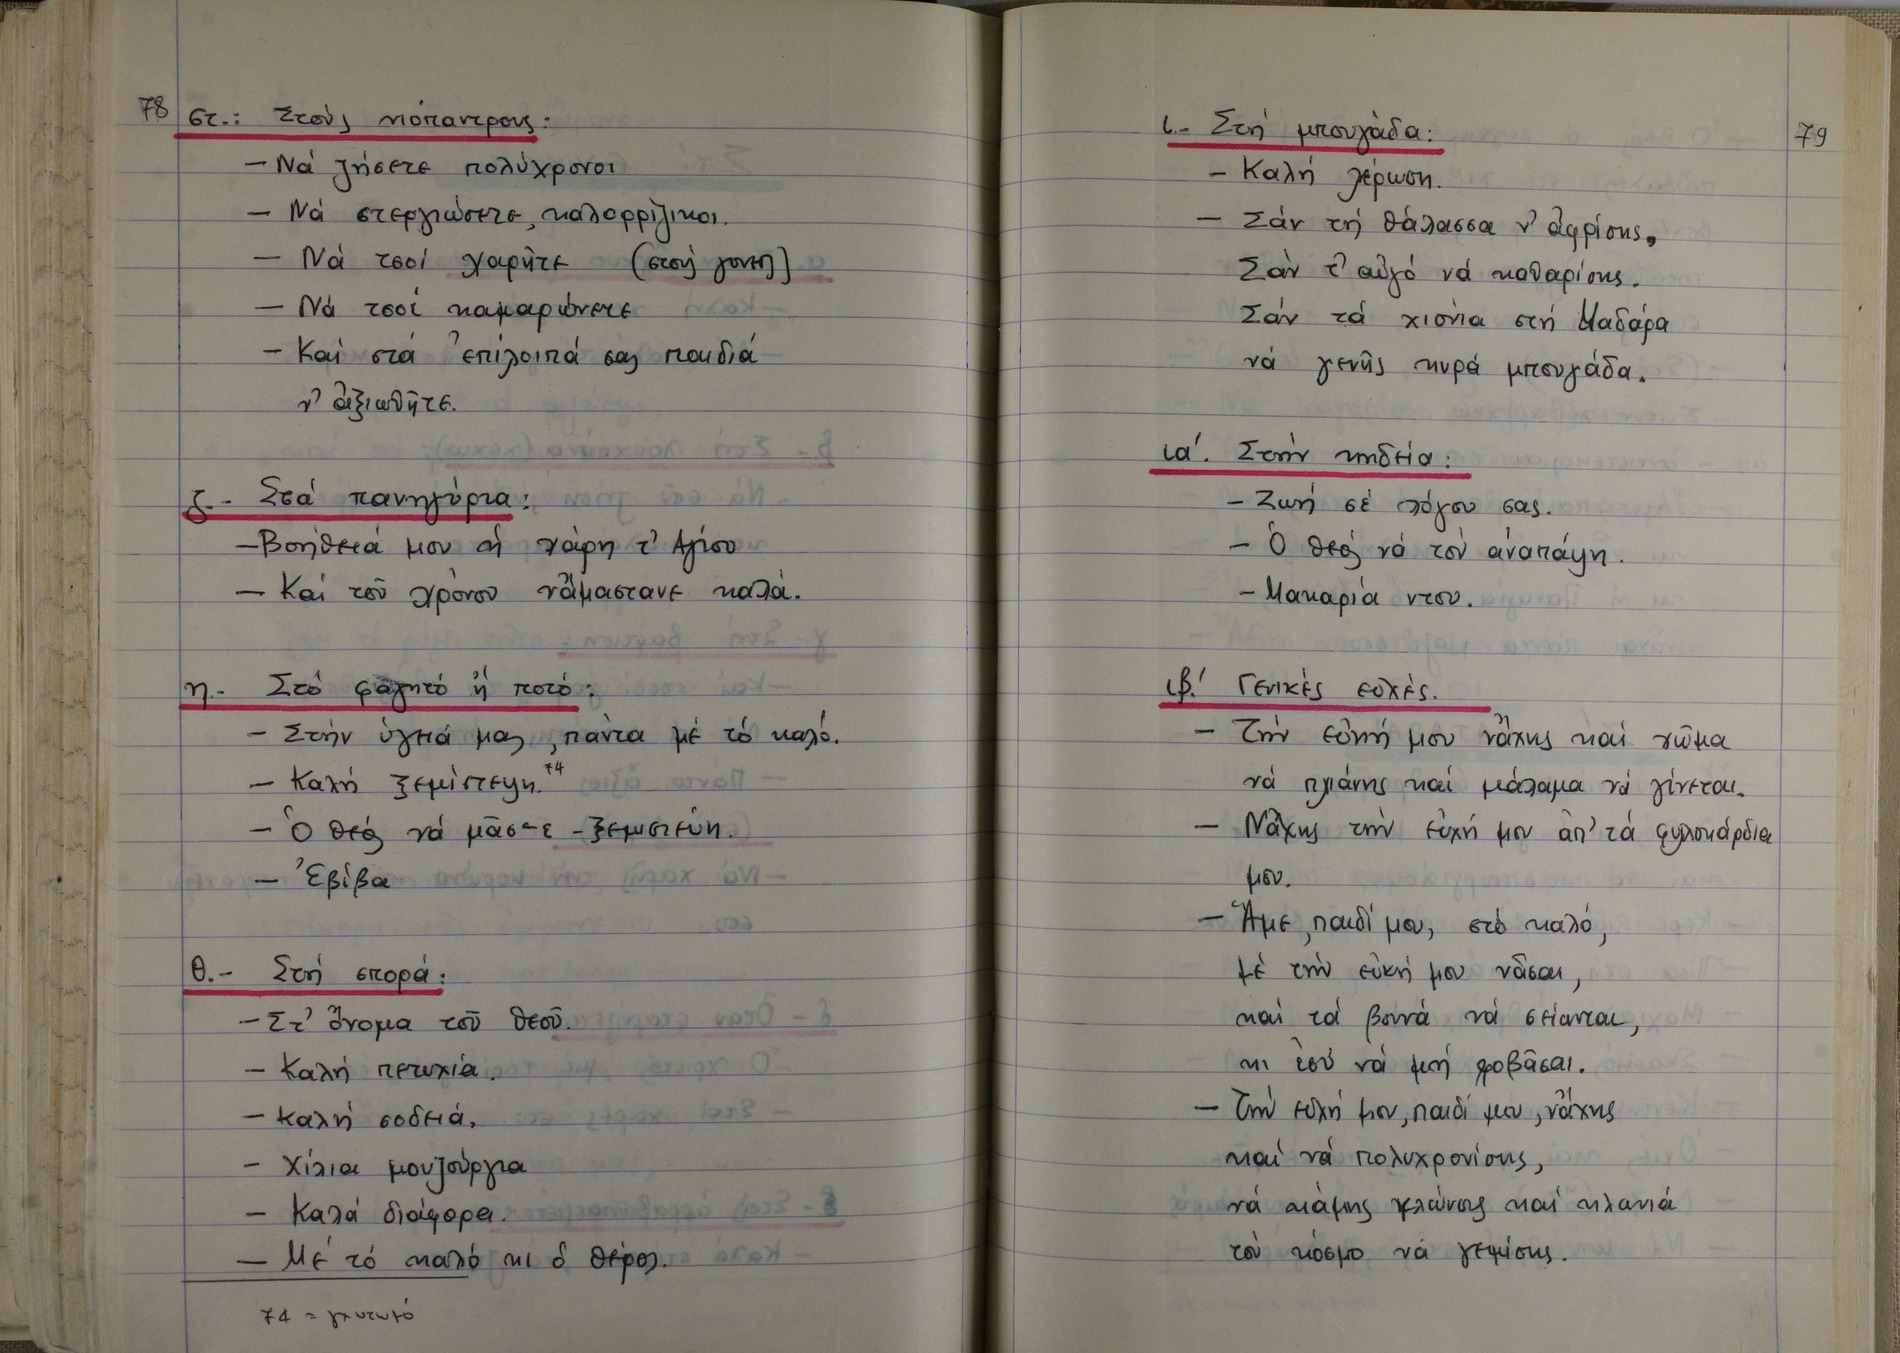 78
στ.: Στούς νιόπαντρους:
- Νά ζήσετε πολύχρονοι
- Νά στεργιώσετε, καλορρίζικοι.
- Νά τσοί χαρῆτε (στούς γονεῖς)
- Νά τσοί καμαρώνετε
- Καί στά ἐπίλοιπά σας παιδιά
ν' ἀξιωθῆτε.
ζ.- Στά πανηγύρια:
- Βοήθειά μου ἡ χάρη τ' Ἁγίου
- Καί τοῦ χρόνου νἄμαστανε καλά.
η.- Στό φαγητό ἤ ποτό:
- Στήν ὑγειά μας, πάντα μέ τό καλό.
- Καλή ξεμίστεψη.74
- Ὁ θεός νά μᾶσ-ε -ξεμιστεύη.
- Ἐβίβα
θ.- Στή σπορά:
- Στ' ὄνομα τοῦ θεοῦ.
- Καλή πετυχιά.
- Καλή σοδειά.
- Χίλια μουζούργια
- Καλά διάφορα.
- Μέ τό καλό κι ὁ θέρος.
74 = γλυτωμό
79
ι.- Στή μπουγάδα:
- Καλή γέρωση.
- Σάν τή θάλασσα ν' ἀφρίσης,
Σάν τ' αὐγό νά καθαρίσης.
Σάν τά χιόνια στή Μαδάρα
νά γενῆς κυρά μπουγάδα.
ια'. Στήν κηδεία:
- Ζωή σέ λόγου σας.
- Ὁ θεός νά τόν ἀναπάψη.
- Μακαρία ντου.
ιβ.' Γενικές εὐχές.
- Τήν εὐκή μου νἄχης καί χῶμα
νά πχιάνης καί μάλαμα νά γίνεται.
- Νἄχης τήν εὐχή μου ἀπ' τά φυλοκάρδια
μου.
- Ἄμε, παιδί μου, στό καλό,
μέ τήν εὐκή μου νἆσαι,
καί τά βουνά νά σείονται,
κι ἐσύ νά μή φοβᾶσαι.
- Τήν εὐχή μου, παιδί μου, νἄχης
καί νά πολυχρονίσης,
νά κάμης κλώνους καί κλανιά
τόν κόσμο νά γεμίσης.